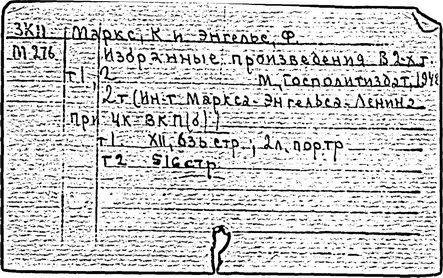 3КII Маркс, К и Энгельс, Ф.
М276 Избранные произведения В 2-х т.
т1,2 М, Госполитиздат, 1948
2т (Ин-т Маркса-Энгельса-Ленина
при ЧК ВКП(б))
т1. XII, 635 стр., 2л. портр
т2 516 стр.